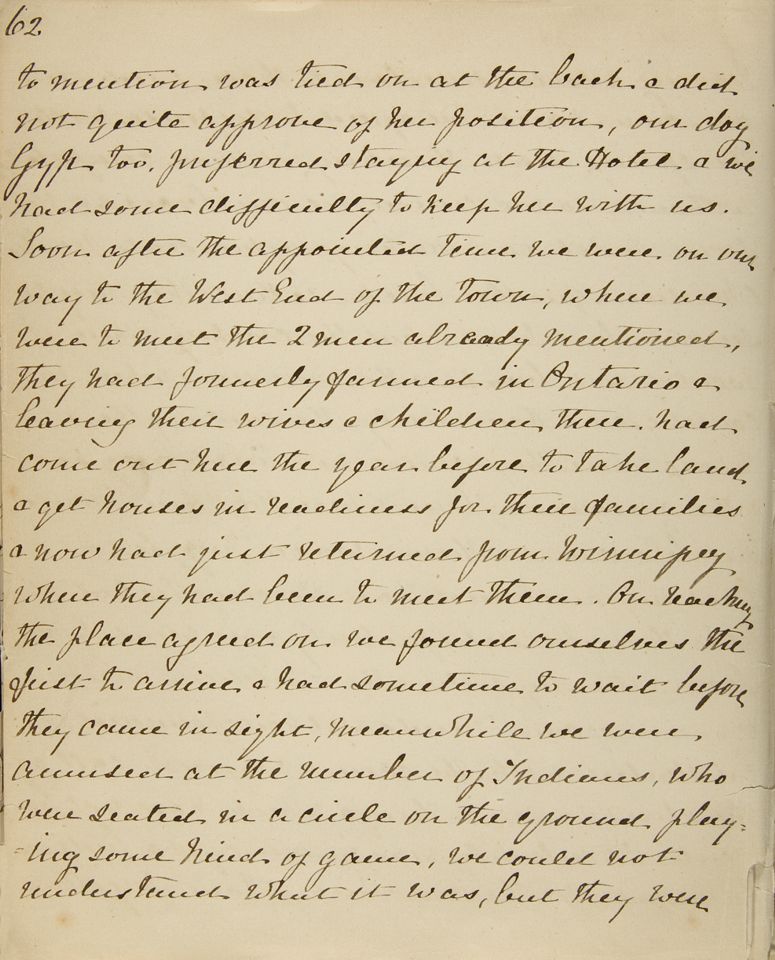 62
to mention was tied on at the back & did
not quite approve of her position, our dog
Gyp too, preferred staying at the Hotel & we
had some difficulty to keep her with us.
Soon after the appointed time we were on our
way to the West End of the town, where we
were to meet the 2 men already mentioned,
they had formerly farmed in Ontario &
leaving their wives & children there, had
come out here the year before to take land
& get houses in readiness for their families
& now had just returned from Winnipeg
where they had been to meet them. On reaching
the place agreed on we found ourselves the
first to arrive & had sometime to wait before
they came in sight, meanwhile we were
amused at the number of Indians, who
were seated in a circle on the ground play=
=ing some kind of game, we could not
understand what it was, but they were